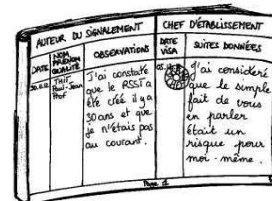 AUTEUR DU SIGNALEMENT
CHEF D'ÉTABLISSEMENT
DATE
NOM
PRÉNOM
QUALITÉ
OBSERVATIONS
DATE
VISA
SUITES DONNÉES
Paul-Jean
Prof
J'ai constaté
que le RSST a
été créé il y a
30 ans et que
je n'étais pas
au courant.
J'ai considéré
que le simple
fait de vous
en parler
était un
risque pour
moi-même.
Page 1